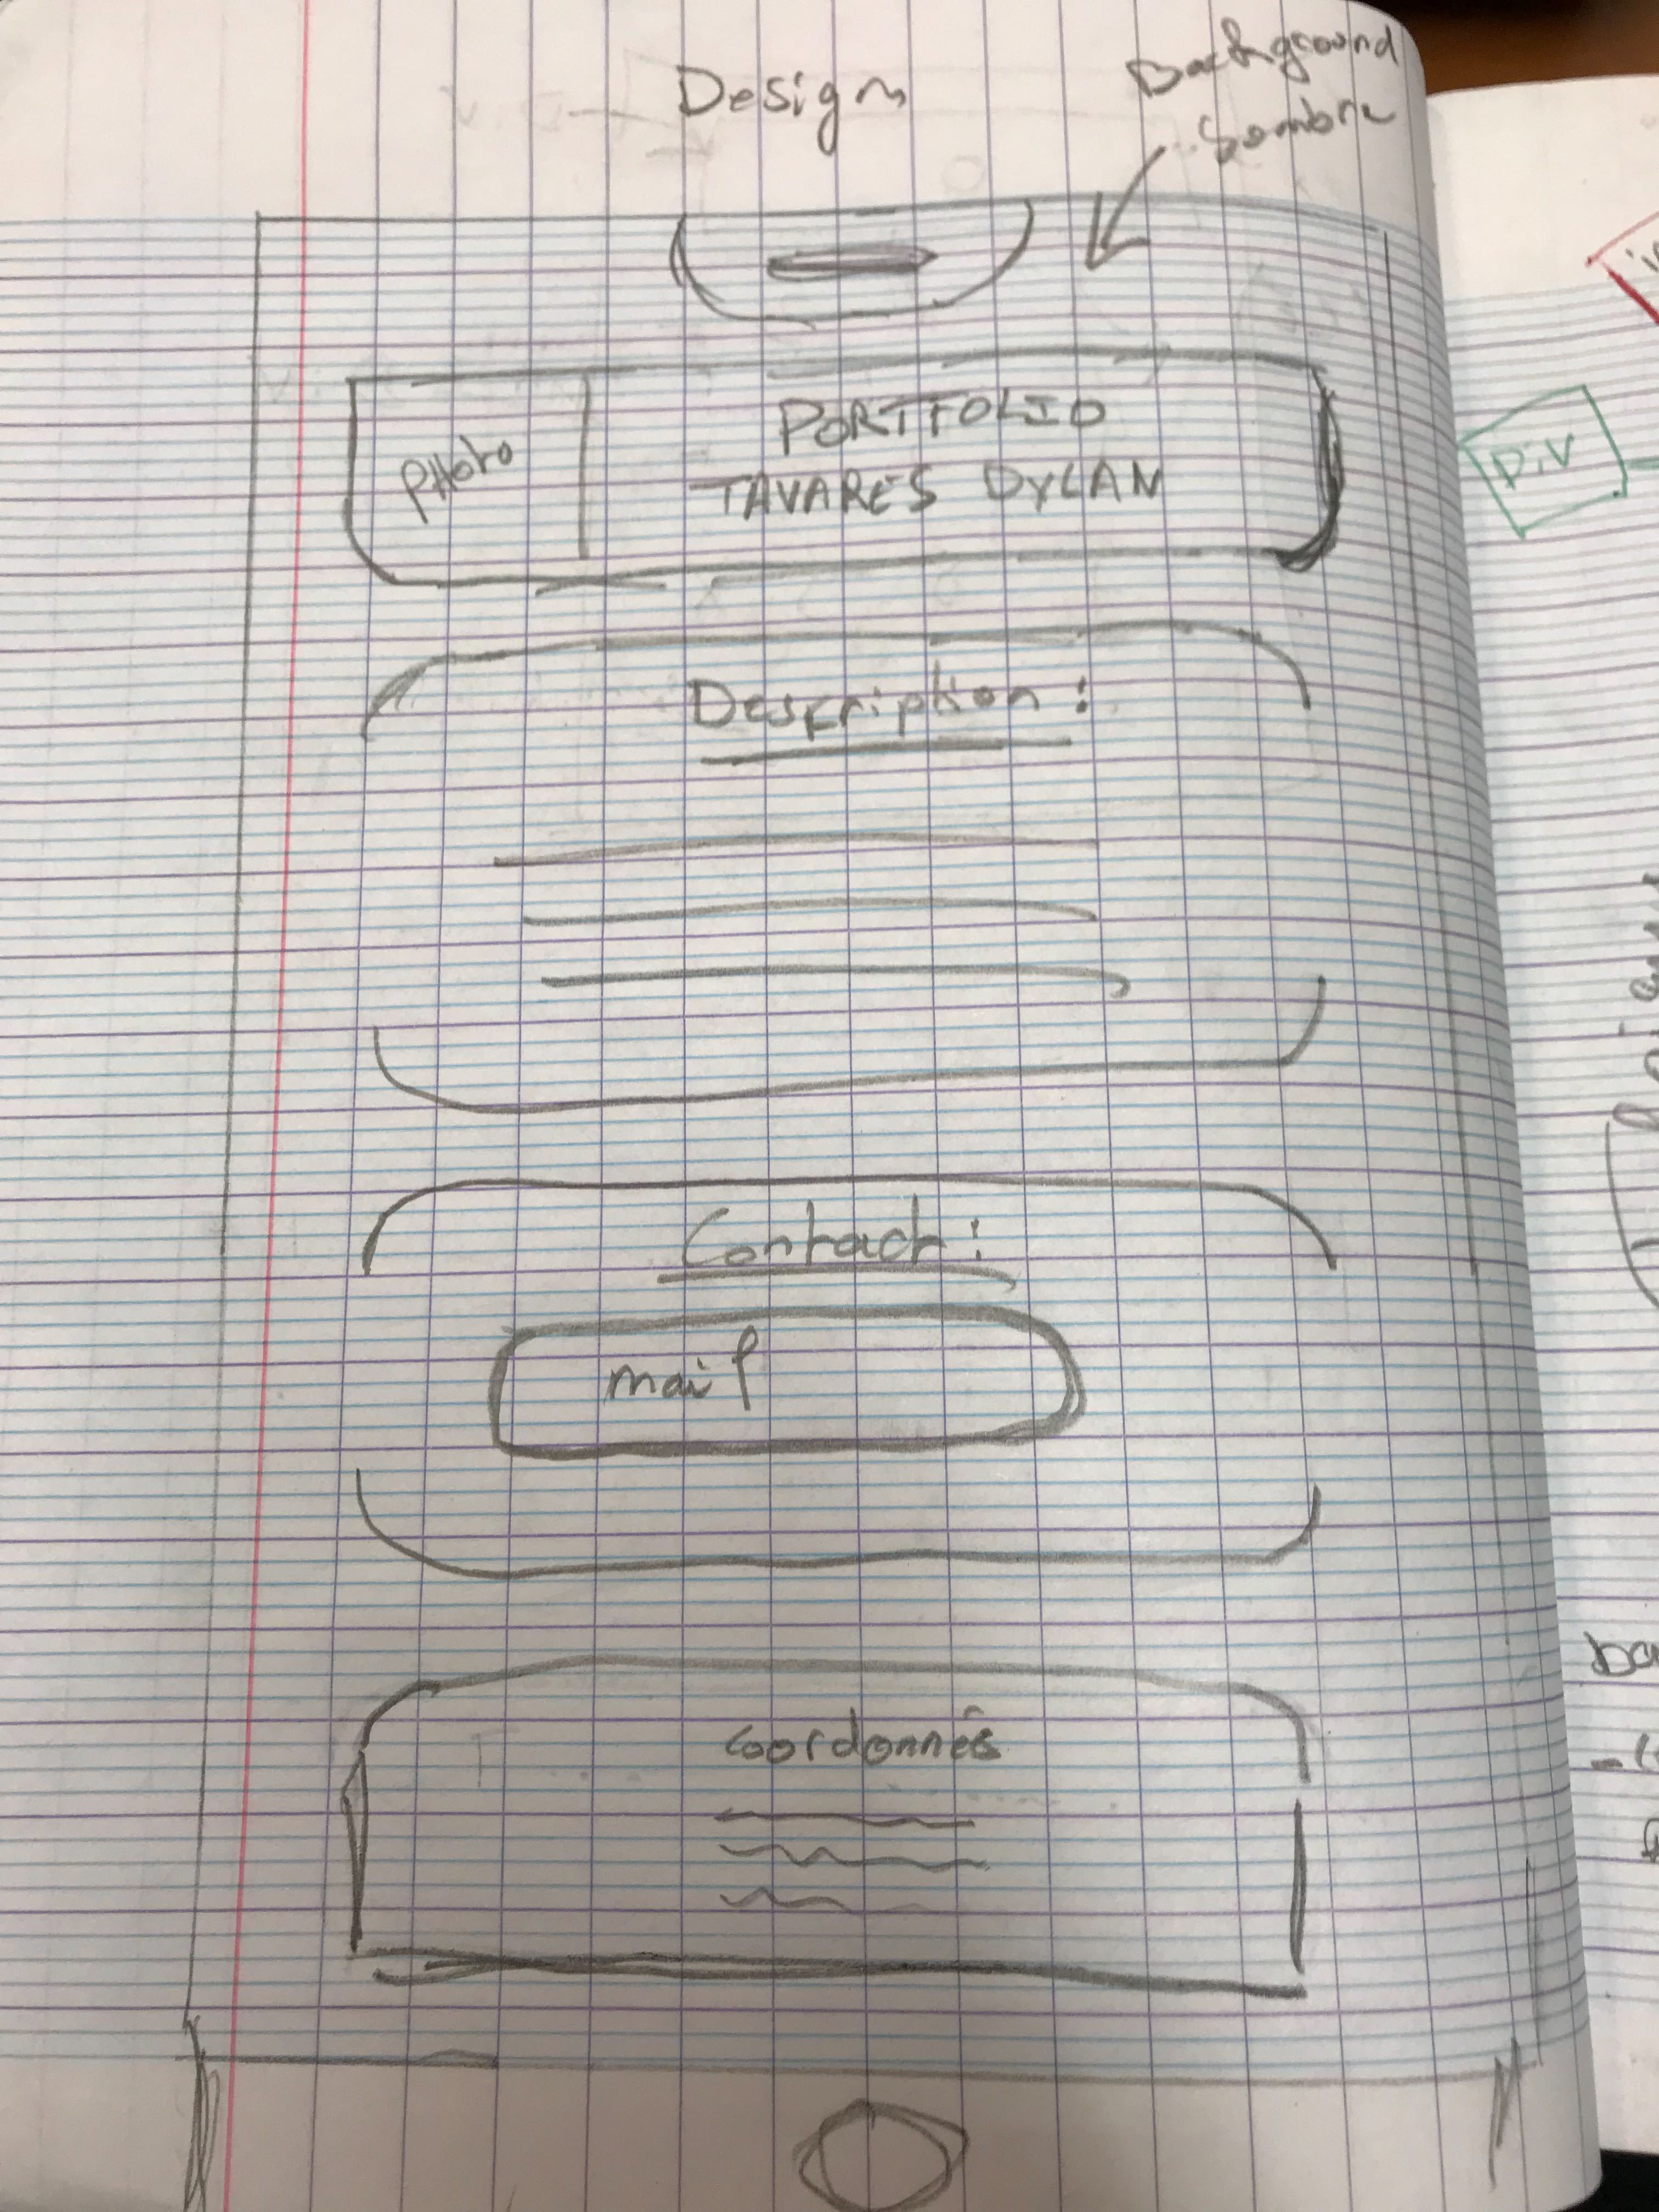 Design
Background
Sombre
PHoto
PORTFOLIO
TAVARES DYLAN
Description :
Contact :
mail
coordonnés
Div